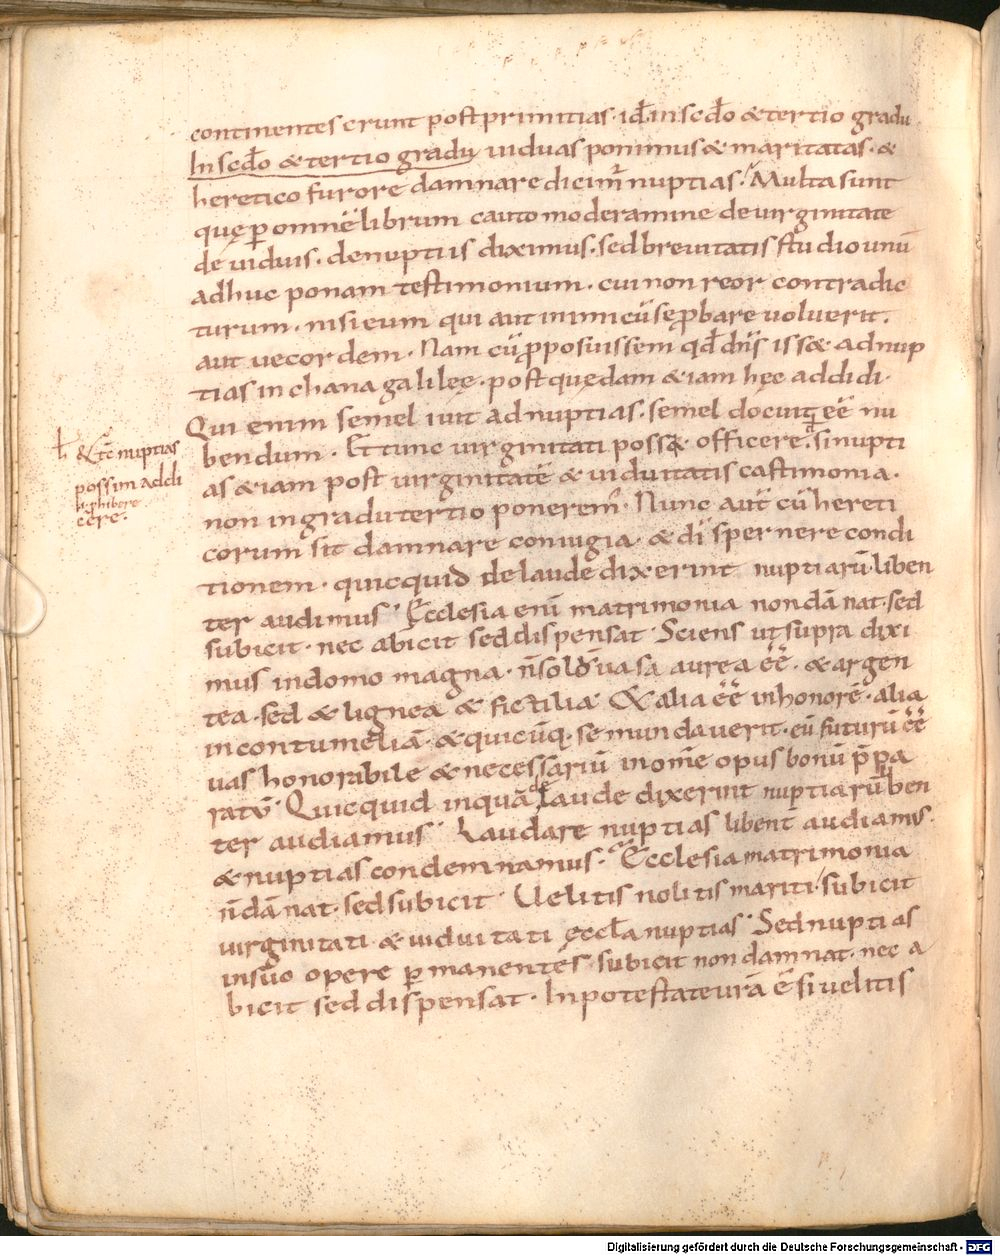 continentes erunt post primitias · id ÷ in scđo & tertio gradu ·
In scđo & tertio gradu uiduas ponimus & maritatas · &
heretico furore damnare dicimr̄ nuptias · Multa sunt
quę ꝑ omnē librum cauto moderamine de uirginitate
de uiduis · de nuptiis diximus · sed breuitatis studio unū
adhuc ponam testimonium · cui non reor contradic
turum · nisi eum qui aut inimicū se ꝓbare uoluerit ·
aut uecordem · Nam cū ꝓposuissem qđ dn̄s iss& ad nup
tias in chana galileę · post quędam &iam hęc addidi ·
Qui enim semel iuit ad nuptias · semel docuit eē nu
bendum · Et tunc uirginitati poss& officere · si nupti
as &iam post uirginitatē & uiduitatis castimonia ·
non in gradu tertio poneremꝰ · Nunc aut̄ cū hereti
corum sit damnare coniugia · & dī spernere condi
tionem · quicquid de laude dixerint nuptiarū · liben
ter audimus · Ecclesia enī matrimonia non dānat · sed
subicit · nec abicit sed dispensat · Sciens ut supra dixi
mus in domo magna · n̄ solū uasa aurea eē · & argen
tea · sed & lignea & fictilia · & alia eē in honorē · alia
in contumeliā · & quicūq · se mundauerit · eū futurū eē
uas honorabile & necessariū in om̄e opus bonū p̄pa
ratū · Quicquid inquā de laude dixerint nuptiarū liben
ter audiamus · Laudare nuptias libent̄ audiamus ·
& nuptias condemnamus · Ecclesia matrimonia
n̄ dānat · sed subicit · Uelitis nolitis mariti · subicit
uirginitati & uiduitati ęccła nuptias · Sed nuptias
in suo opere ꝑmanentes · subicit non damnat · nec a
bicit sed dispensat · In potestate ur̄ā ē si uelitis
ł & tc̄ nuptias
possim addi
ꝓhibere
cere ·
Digitalisierung gefördert durch die Deutsche Forschungsgemeinschaft - DFG